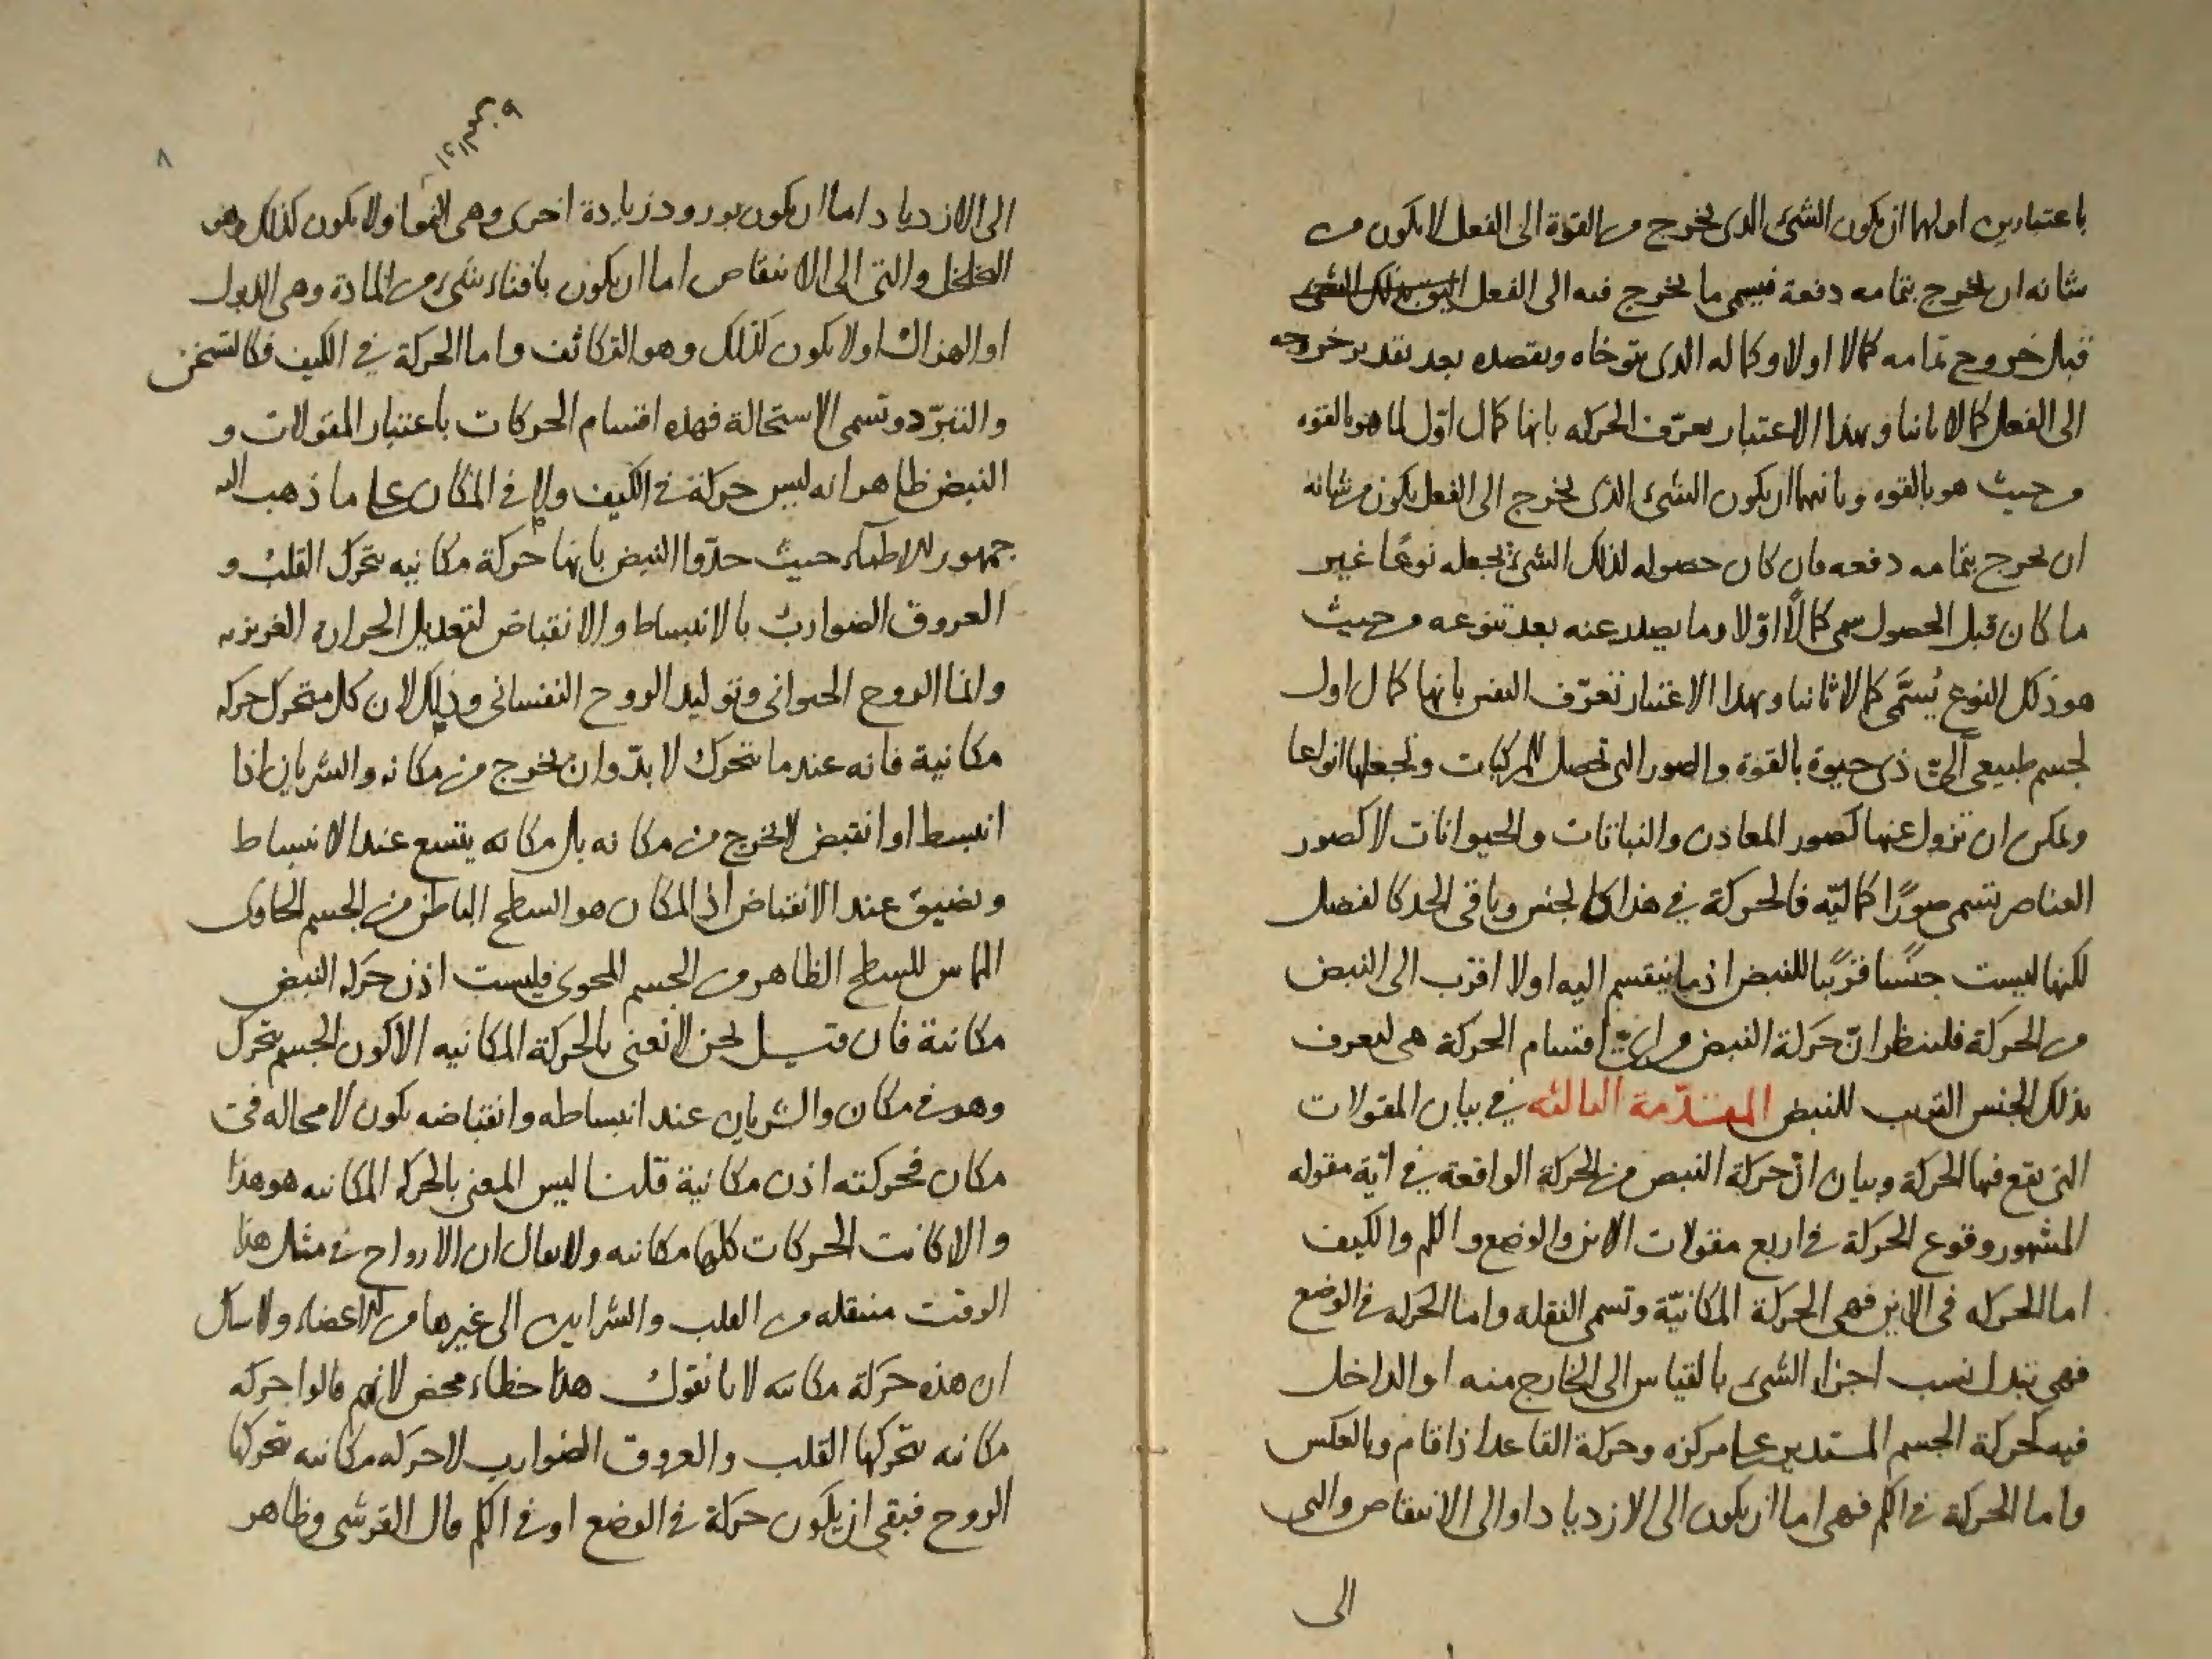 باعتبارين اولهما ان يكون الشئ الذى يخرج من القوة الى الفعل لا يكون من
شانه ان يخرج بتمامه دفعة فيسمى ما يخرج فيه الى الفعل
قبل خروج تمامه كمالا اولا وكماله الذى يتوخاه ويقصده بعد تقدير خروجه
الى الفعل كمالا ثانيا وبهذا الاعتبار يعرّف الحركه بانها كمال اوّل لما هو بالقوه
من حيث هو بالقوه وثانيهما ان يكون الشئ الذى يخرج الى الفعل يكون من شانه
ان يخرج بتمامه دفعه فان كان حصوله لذلك الشئ يجعله نوعًا غير
ما كان قبل الحصول سمى كمالًا اوّلا وما يصدر عنه بعد تنوعه من حيث
هو ذلك النوع يُسمَّى كمالا ثانيا وبهذا الاعتبار تعرّف النفس بانها كمال اول
لجسم طبيعى آلىّ ذى حيوة بالقوة والصور التى تحصل للمركبات وتجعلها انواعا
ويمكن ان تزول عنها كصور المعادن والنباتات والحيوانات لا كصور
العناصر تسمى صورًا كماليّه فالحركة في هذا كالجنس وباقى الحد كالفصل
لكنها ليست جنسًا قريبًا للنبض اذ ما ينقسم اليه اولا اقرب الى النبض
من الحركة فلينظر انّ حركة النبض من اىّ اقسام الحركة هى ليعرف
بذلك الجنس القريب للنبض المقدّمة الثالثه في بيان المقولات
التى يقع فيها الحركة وبيان انّ حركة النبض من الحركة الواقعة في ايّة مقوله
المشهور وقوع الحركة في اربع مقولات الاين والوضع والكم والكيف
اما الحركه في الاين فهى الحركة المكانيّة وتسمى النقله واما الحركه في الوضع
فهى تبدل نسب اجزاء الشئ بالقياس الى الخارج منه او الداخل
فيه كحركة الجسم المستدير على مركزه وحركة القاعد اذا قام وبالعكس
واما الحركة في الكم فهى اما ان يكون الى الازدياد او الى الانتقاص والتى
الى
٨
الى الازدياد اما ان يكون بورود زيادة اخرى وهى النمو او لا يكون كذلك وهو
التخلخل والتى الى الانتقاص اما ان يكون بافناء شئ من المادة وهى الذبول
او الهزال او لا يكون كذلك وهو التكاثف واما الحركة في الكيف فكالتسخن
والتبرّد وتسمى الاستحالة فهذه اقسام الحركات باعتبار المقولات و
النبض ظاهر انه ليس حركة في الكيف ولا في المكان على ما ذهب اليه
جمهور الاطباء حيث حدّوا النبض بانها حركة مكانيه يتحرك القلب و
العروق الضوارب بالانبساط والانقباض لتعديل الحرارة الغريزيه
وانما الروح الحيوانى وتوليد الروح النفسانى وذلك لان كل متحرك حركه
مكانية فانه عندما يتحرك لا بدّ وان يخرج من مكانه والشريان اذا
انبسط او انقبض لا يخرج من مكانه بل مكانه يتسع عند الانبساط
ويضيق عند الانقباض اذ المكان هو السطح الباطن من الجسم الحاوى
المماس للسطح الظاهر من الجسم المحوى فليست اذن حركه النبض
مكانية فان قيل نحن لا نعنى بالحركة المكانيه الا كون الجسم يتحرك
وهو في مكان والشريان عند انبساطه وانقباضه يكون لا محاله في
مكان فحركته اذن مكانية قلنا ليس المعنى بالحركه المكانيه هو هذا
والا كانت الحركات كلها مكانيه ولا يقال ان الارواح في مثل هذا
الوقت منتقله من القلب والشرايين الى غيرها من الاعضاء ولا شك
ان هذه حركة مكانيه لانا نقول هذا خطاء محض لانهم قالوا حركه
مكانيه يتحركها القلب والعروق الضوارب لا حركه مكانيه تتحركها
الروح فبقى ان يكون حركة في الوضع او في الكم قال القرشى وظاهر